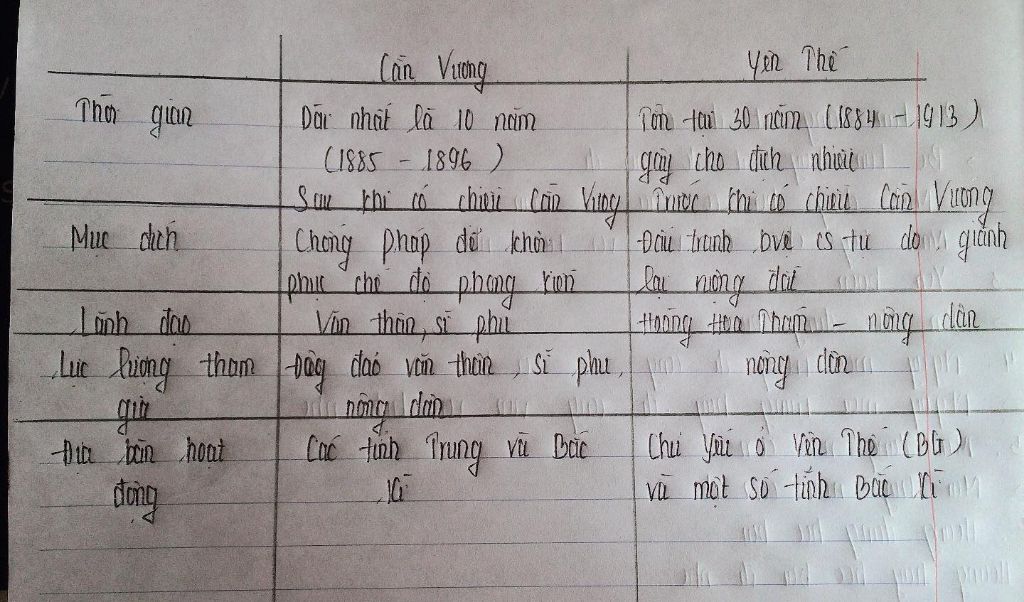 Cần Vương Yên Thế
Thời gian Dài nhất là 10 năm Tồn tại 30 năm (1884 - 1913)
(1885 - 1896) gây cho địch nhiều
Sau khi có chiếu Cần Vương Trước khi có chiếu Cần Vương
Mục đích Chống Pháp để khôi Đấu tranh bvệ cs tự do, giành
phục chế độ phong kiến lại ruộng đất
Lãnh đạo Văn thân, sĩ phu Hoàng Hoa Thám - nông dân
Lực lượng tham Đông đảo văn thân, sĩ phu, nông dân
gia nông dân
Địa bàn hoạt Các tỉnh Trung và Bắc Chủ yếu ở Yên Thế (BG)
động Kì và một số tỉnh Bắc Kì